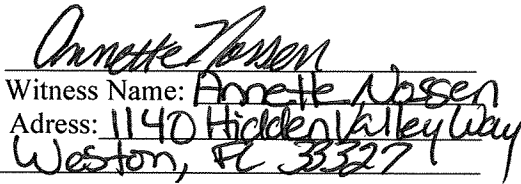 Annette Nossen
Witness Name: Annette Nossen
Adress: 1140 Hidden Valley Way
Weston, FL 33327